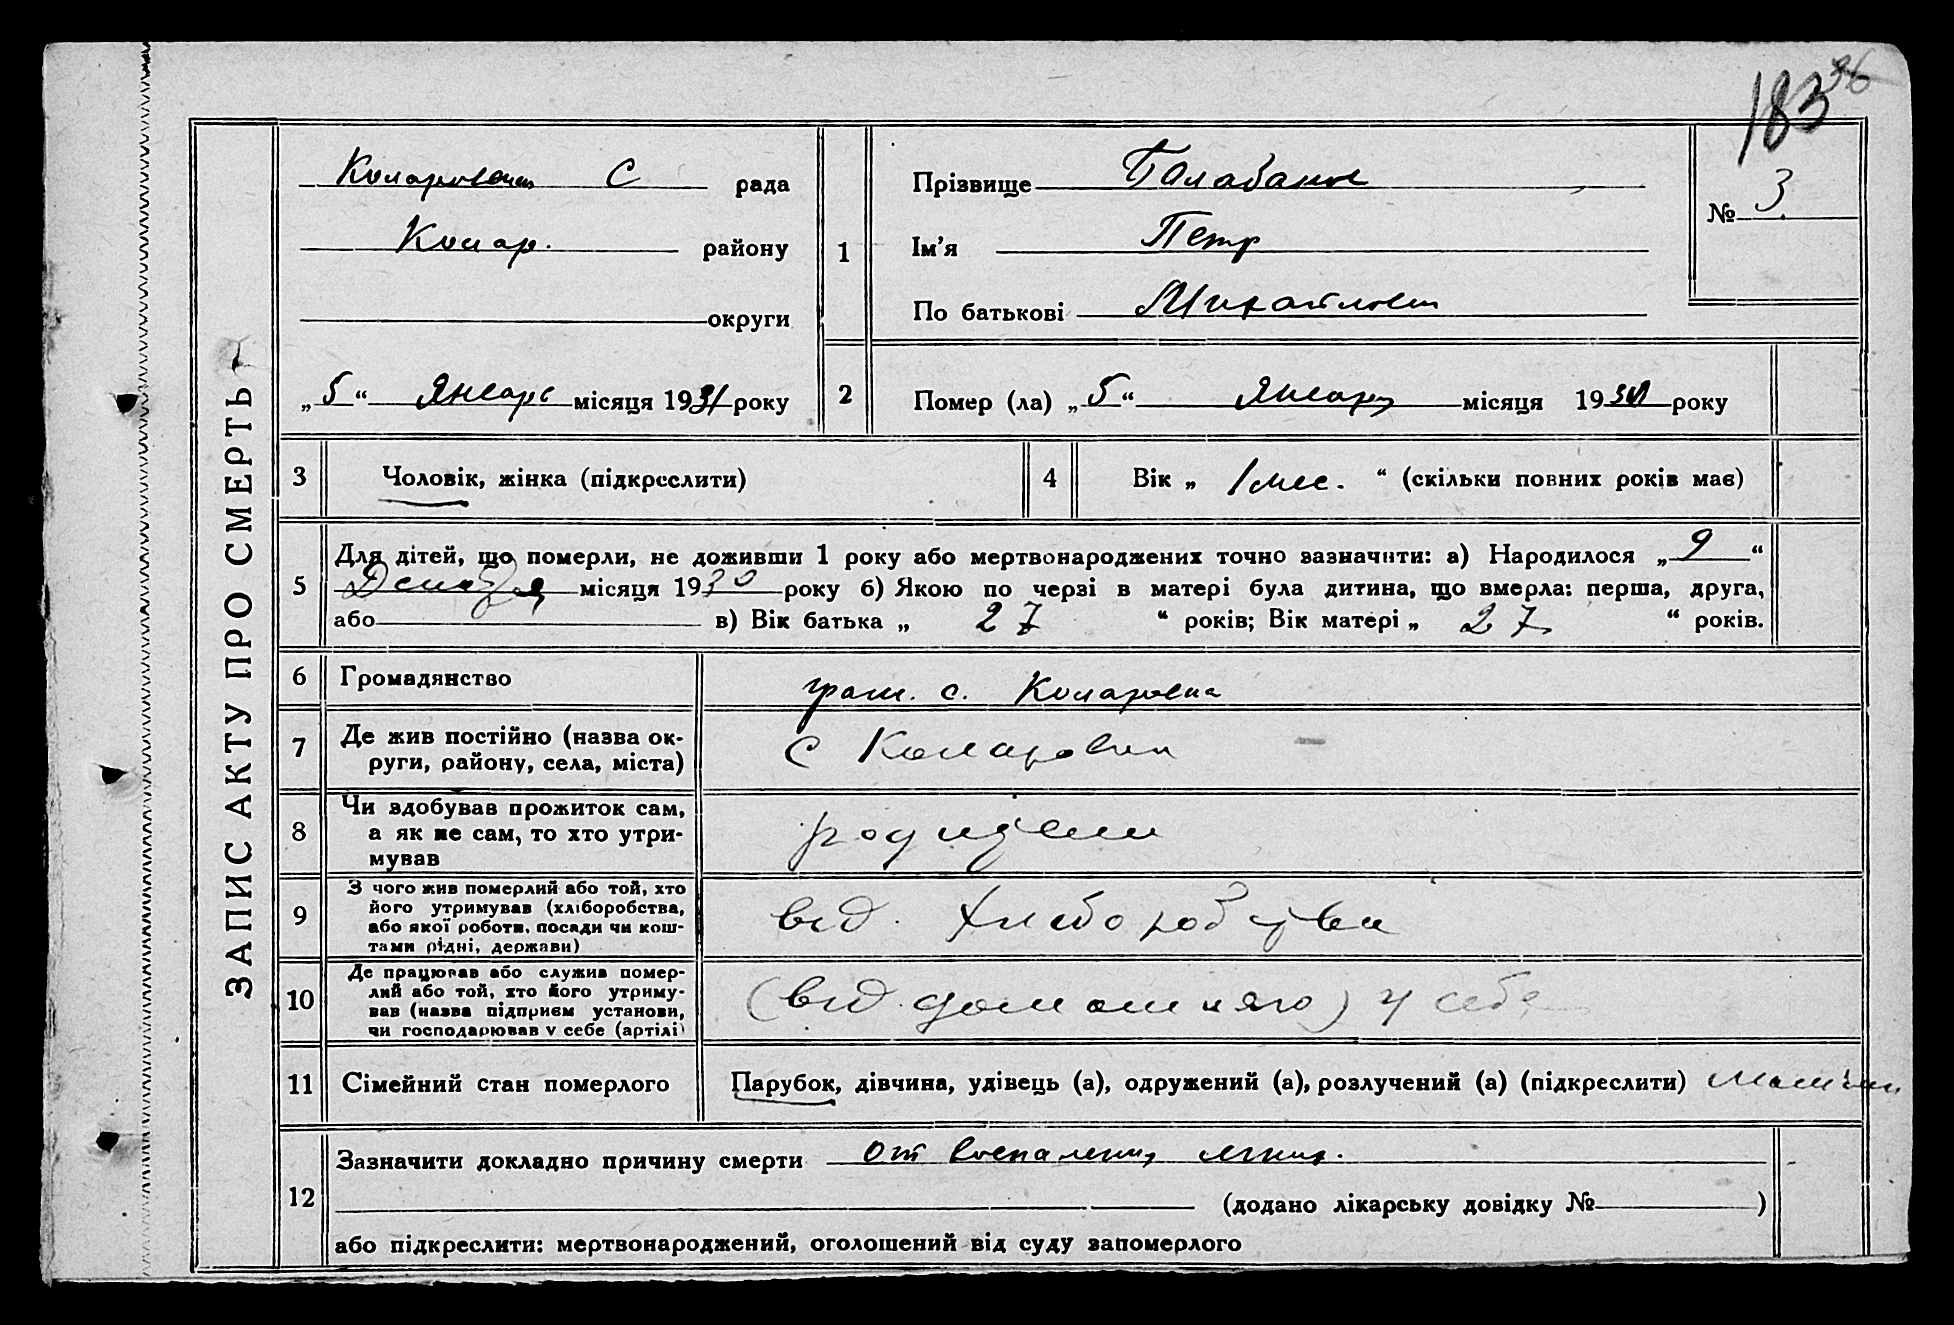 183
36
ЗАПИС АКТУ ПРО СМЕРТЬ
С рада
Комар. району
округи
„5“ Январь місяця 1931 року
1
Прізвище Балабанов
Ім'я Петр
По батькові Михайлович
№ 3
2
Помер (ла) „5“ Января місяця 1931 року
3
Чоловік, жінка (підкреслити)
4
Вік „ 1 мес. “ (скільки повних років має)
5
Для дітей, що померли, не доживши 1 року або мертвонароджених точно зазначити: а) Народилося „ 9 “
Декабря місяця 1930 року б) Якою по черзі в матері була дитина, що вмерла: перша, друга,
або в) Вік батька „ 27 “ років; Вік матері „ 27 “ років.
6
Громадянство
с. Комаровка
7
Де жив постійно (назва ок-
руги, району, села, міста)
С Комаровки
8
Чи здобував прожиток сам,
а як не сам, то хто утри-
мував
родители
9
З чого жив померлий або той, хто
його утримував (хліборобства,
або якої роботи, посади чи кош-
тами рідні, держави)
від. хлеборобства
10
Де працював або служив помер-
лий або той, хто його утриму-
вав (назва підприєм установи,
чи господарював у себе (артілі)
(від домашняго) у себе
11
Сімейний стан померлого
Парубок, дівчина, удівець (а), одружений (а), розлучений (а) (підкреслити)
12
Зазначити докладно причину смерти От воспаления легких.
(додано лікарську довідку № )
або підкреслити: мертвонароджений, оголошений від суду запомерлого